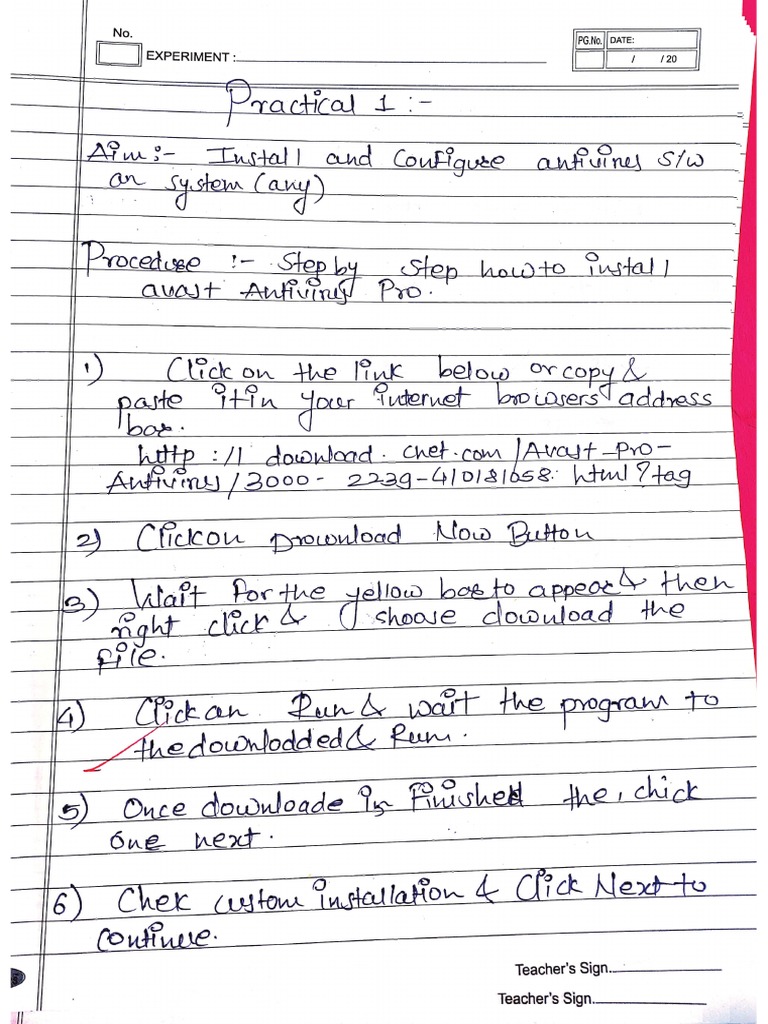 No.
EXPERIMENT :
PG.No. DATE:
/ / 20
Practical 1 :-
Aim:- Install and Configure antivirus S/W
on system (any)
Procedure :- Step by Step how to install
avast Antivirus Pro.
1) Click on the link below or copy &
paste it in your internet browsers address
bar.
http :// download. cnet.com /Avast-Pro-
Antivirus/3000- 2239-4/0181658: html?tag
2) Click on Drownload Now Button
3) Wait for the yellow bar to appear & then
right click & shoose download the
file.
4) Click an Run & wait the program to
the downlodded & Rum.
5) Once downloade is Finished the, chick
one next.
6) Chek custom installation & Click Next to
continue.
Teacher's Sign.
Teacher's Sign.